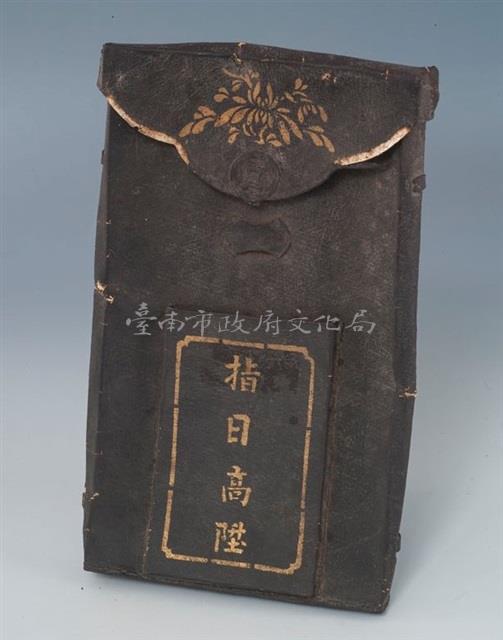 臺南市政府文化局
指日高陞